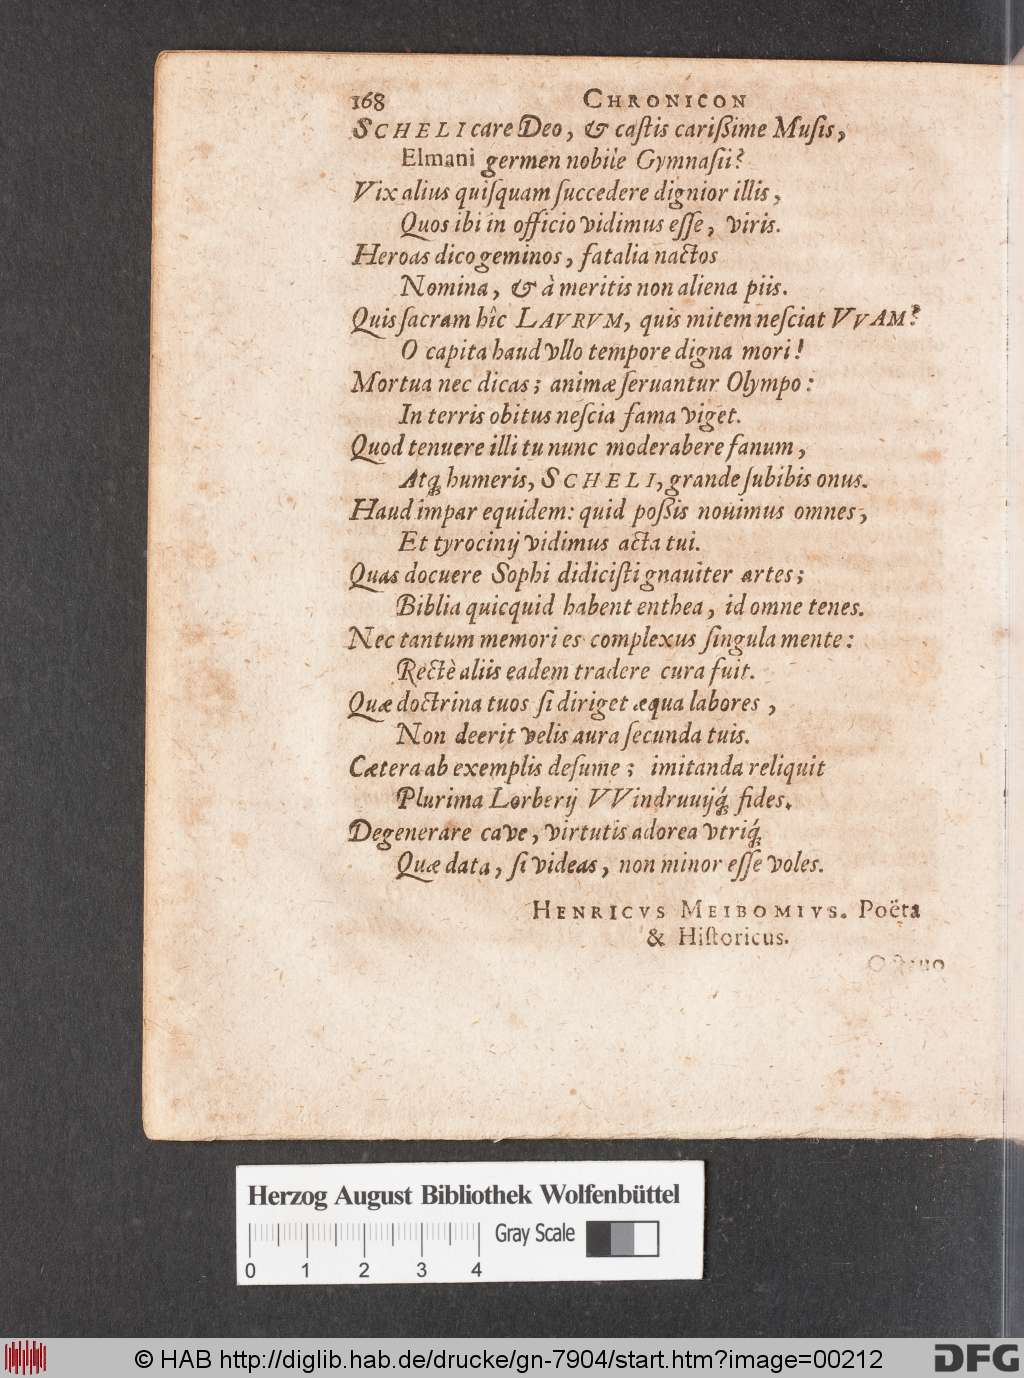 168 CHRONICON
SCHELI care Deo, & caſtis carißime Muſis,
Elmani germen nobile Gymnaſii?
Vix alius quiſquam ſuccedere dignior illis,
Quos ibi in officio vidimus eſſe, viris.
Heroas dico geminos, fatalia nactos
Nomina, & à meritis non aliena piis.
Quis ſacram hîc LAVRVM, quis mitem neſciat VVAM?
O capita haud vllo tempore digna mori!
Mortua nec dicas; animæ ſeruantur Olympo:
In terris obitus neſcia fama viget.
Quod tenuere illi tu nunc moderabere fanum,
Atq; humeris, SCHELI, grande ſubibis onus.
Haud impar equidem: quid poßis nouimus omnes,
Et tyrocinij vidimus acta tui.
Quas docuere Sophi didiciſti gnauiter artes;
Biblia quicquid habent enthea, id omne tenes.
Nec tantum memori es complexus ſingula mente:
Rectè aliis eadem tradere cura fuit.
Quæ doctrina tuos ſi diriget æqua labores,
Non deerit velis aura ſecunda tuis.
Cætera ab exemplis deſume; imitanda reliquit
Plurima Lorberij VVindruuijq́; fides.
Degenerare cave, virtutis adorea vtriq́;
Quæ data, ſi videas, non minor eſſe voles.
HENRICVS MEIBOMIVS. Poëta
& Hiſtoricus.
Herzog August Bibliothek Wolfenbüttel
Gray Scale
0 1 2 3 4
© HAB http://diglib.hab.de/drucke/gn-7904/start.htm?image=00212
DFG